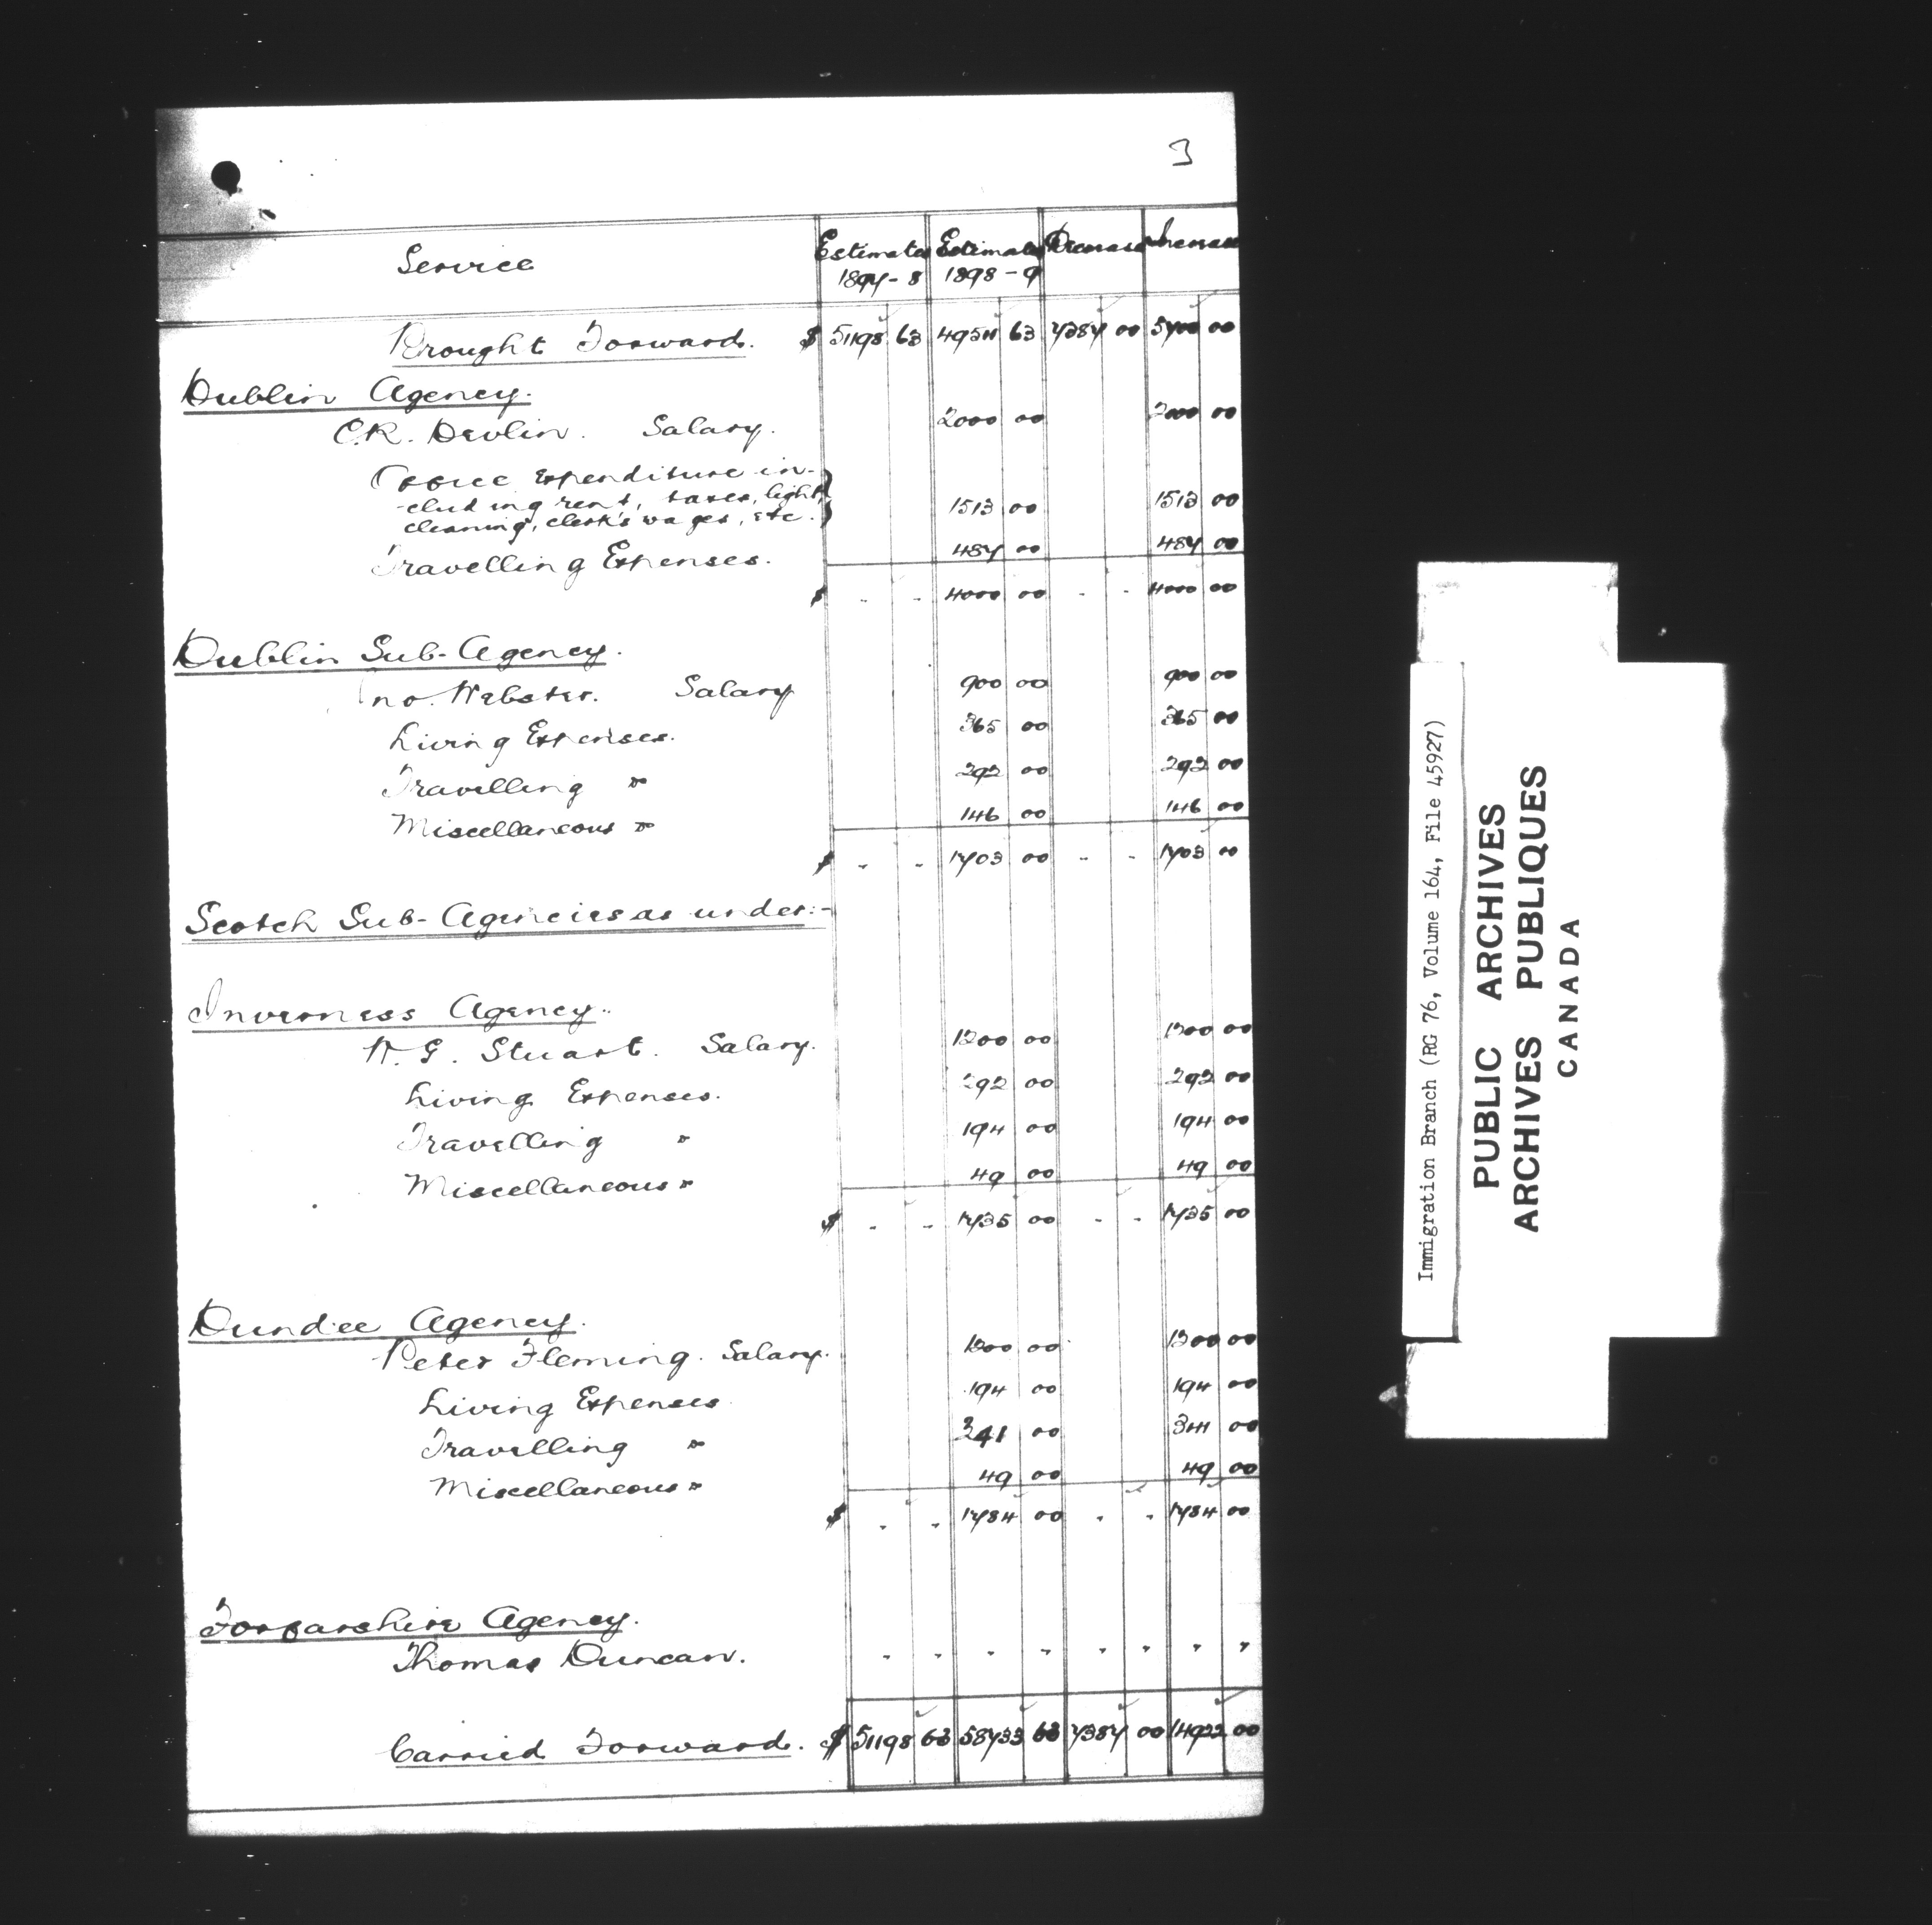 3
Service Estimates 1897-8 Estimates 1898-9 Decrease Increase
Brought Forward. $ 51198 63 49511 63 7387 00 5700 00
Dublin Agency.
C.R. Devlin. Salary. 2000 00 2000 00
Office Expenditure in-
cluding rent, taxes, light,
cleaning, clerk's wages, etc. 1513 00 1513 00
Travelling Expenses. 487 00 487 00
$ - - 4000 00 - - 4000 00
Dublin Sub-Agency.
Jno. Webster. Salary 900 00 900 00
Living Expenses. 365 00 365 00
Travelling " 292 00 292 00
Miscellaneous " 146 00 146 00
$ - - 1703 00 - - 1703 00
Scotch Sub-Agencies as under:-
Inverness Agency.
W.G. Stuart. Salary. 1200 00 1200 00
Living Expenses. 292 00 292 00
Travelling " 194 00 194 00
Miscellaneous " 49 00 49 00
$ - - 1735 00 - - 1735 00
Dundee Agency.
Peter Fleming. Salary. 1200 00 1200 00
Living Expenses 194 00 194 00
Travelling " 341 00 341 00
Miscellaneous " 49 00 49 00
$ - - 1784 00 - - 1784 00
Forfarshire Agency.
Thomas Duncan. - - - - - - - -
Carried Forward. $ 51198 63 58733 63 7387 00 14922 00
Immigration Branch (RG 76, Volume 164, File 45927)
PUBLIC ARCHIVES
ARCHIVES PUBLIQUES
CANADA